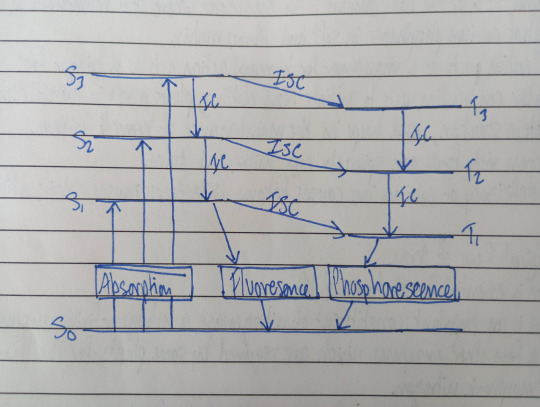 S3 ISC
IC T3
S2 ISC IC
IC T2
S1 ISC IC
T1
Absorption Fluoresence Phosphorescence
S0